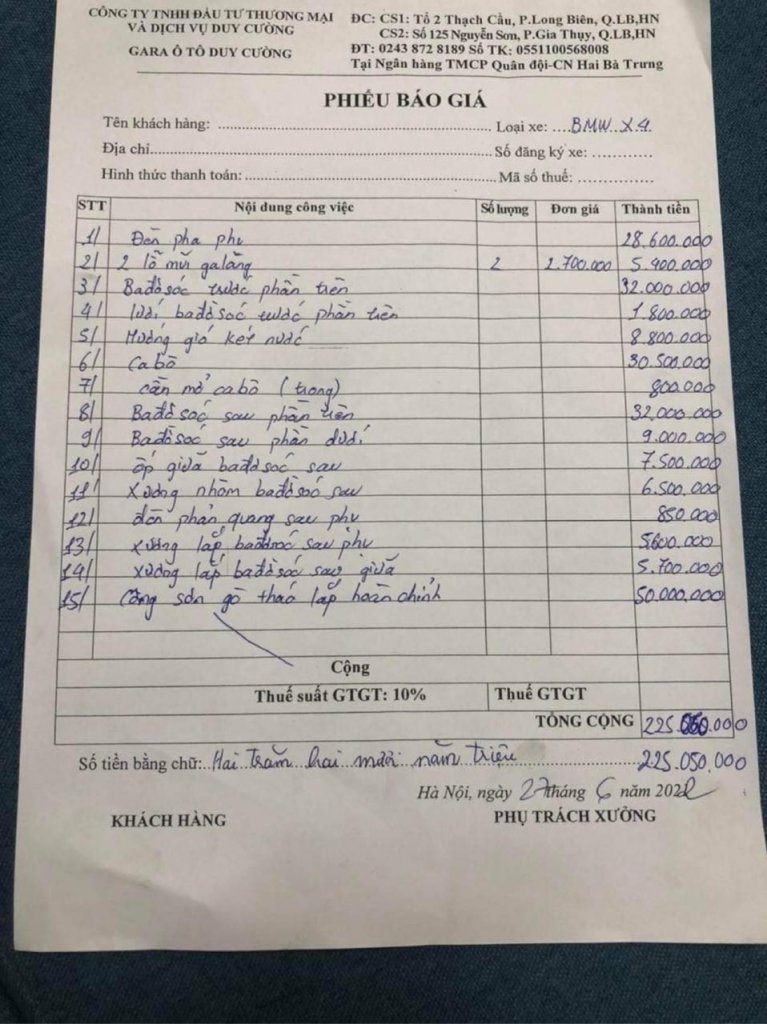 CÔNG TY TNHH ĐẦU TƯ THƯƠNG MẠI
VÀ DỊCH VỤ DUY CƯỜNG
GARA Ô TÔ DUY CƯỜNG
ĐC: CS1: Tổ 2 Thạch Cầu, P.Long Biên, Q.LB,HN
CS2: Số 125 Nguyễn Sơn, P.Gia Thụy, Q.LB,HN
ĐT: 0243 872 8189 Số TK: 0551100568008
Tại Ngân hàng TMCP Quân đội-CN Hai Bà Trưng
PHIẾU BÁO GIÁ
Tên khách hàng: ........ Loại xe: ....BMW X4
Địa chỉ........ Số đăng ký xe: ............
Hình thức thanh toán: ........ Mã số thuế: ............
STT Nội dung công việc Số lượng Đơn giá Thành tiền
1/ Đèn pha phụ 28.600.000
2/ 2 lỗ mũi galăng 2 2.700.000 5.400.000
3/ Ba đờ sốc trước phần trên 32.000.000
4/ lưới ba đờ sốc trước phần trên 1.800.000
5/ Hướng gió két nước 8.800.000
6/ Ca bô 30.500.000
7/ cần mở ca bô (trong) 800.000
8/ Ba đờ sốc sau phần trên 32.000.000
9/ Ba đờ sốc sau phần dưới 9.000.000
10/ ốp giữa ba đờ sốc sau 7.500.000
11/ Xương nhôm ba đờ sốc sau 6.500.000
12/ đèn phản quang sau phụ 850.000
13/ xương lắp ba đờ sốc sau phụ 5.600.000
14/ xương lắp ba đờ sốc sau giữa 5.700.000
15/ Công sơn gò tháo lắp hoàn chỉnh 50.000.000
Cộng
Thuế suất GTGT: 10% Thuế GTGT
TỔNG CỘNG 225.050.000
Số tiền bằng chữ: Hai trăm hai mươi năm triệu ........ 225.050.000
Hà Nội, ngày 27 tháng 6 năm 2022
KHÁCH HÀNG PHỤ TRÁCH XƯỞNG